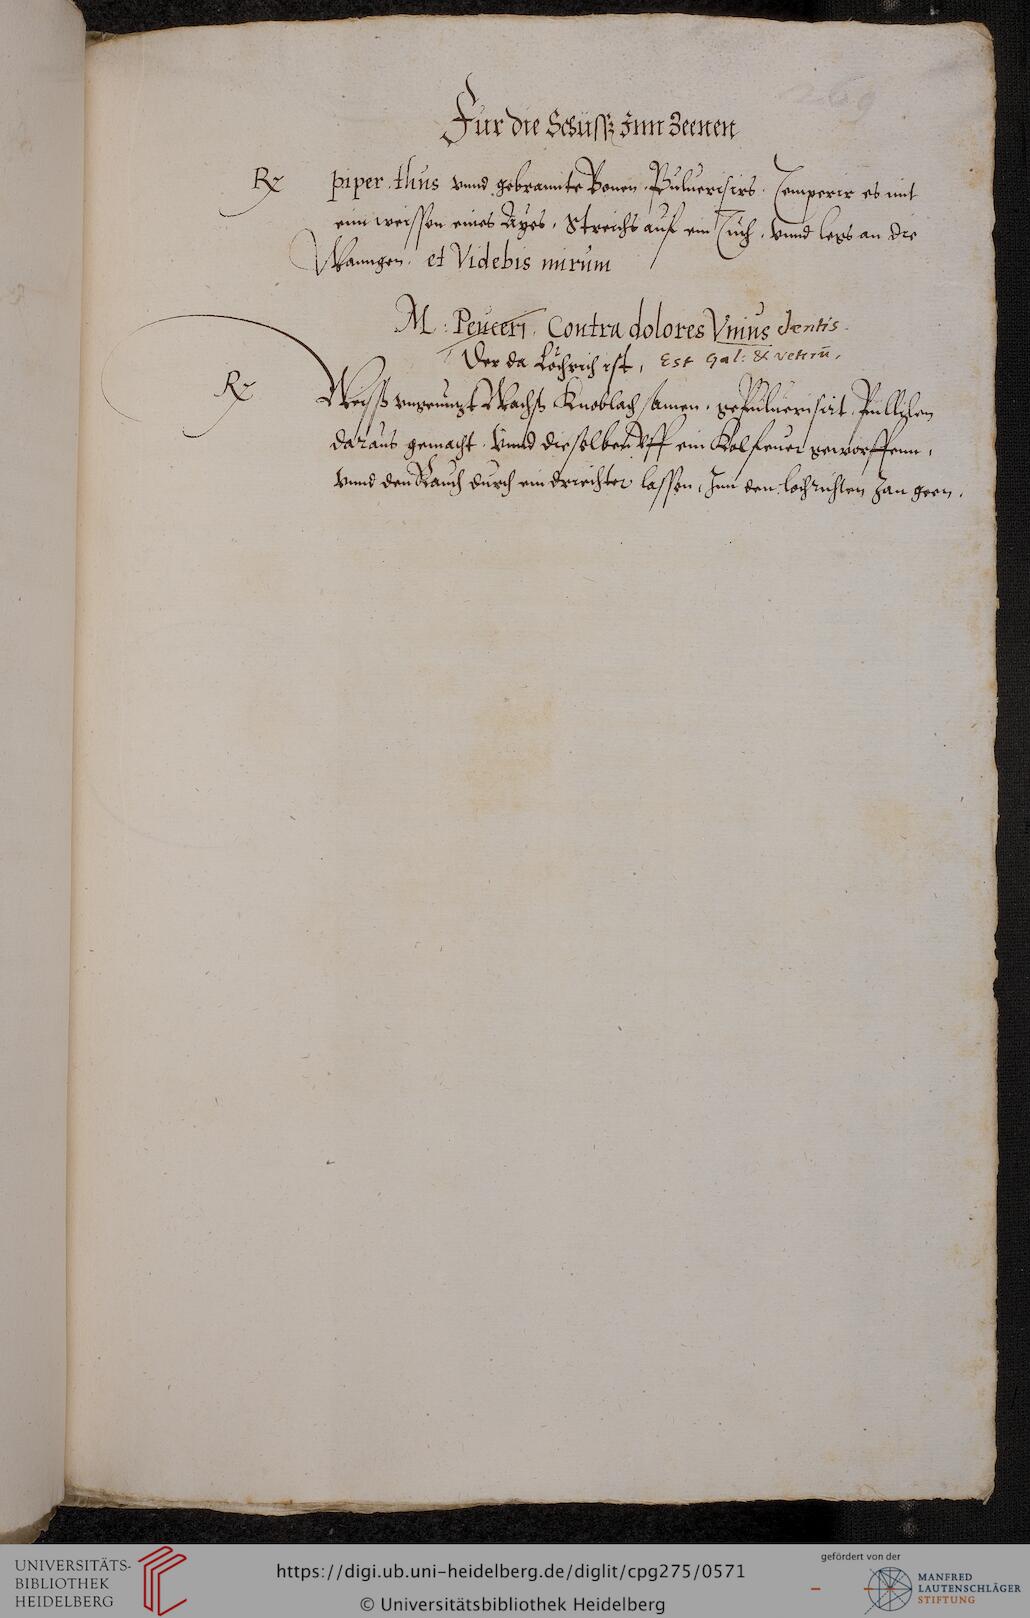 269
Fur die Schüssz Inn Zeenen
Rx piper. thus vnnd gebrannte Bonen. Puluerisirs. Temperir es mit
eim weissen eines Ayes. Streichs auf ein Tuch. vnnd legs an die
Wanngen. et Videbis mirum
M: Peuceri. Contra dolores Vnius dentis.
Der da Löchrich ist, Est Gal: & veterū.
Rx Weiss vngenützt Wachs Knoblach samen. gepuluerisirt. Pilllulen
daraus gemacht. Vnnd dieselben Vff ein Kolfeuer geworffenn,
vnnd den Rauch durch ein drechter lassen, Inn den lochrichten Zan geen.
UNIVERSITÄTS-
BIBLIOTHEK
HEIDELBERG
https://digi.ub.uni-heidelberg.de/diglit/cpg275/0571
© Universitätsbibliothek Heidelberg
gefördert von der
MANFRED
LAUTENSCHLÄGER
STIFTUNG